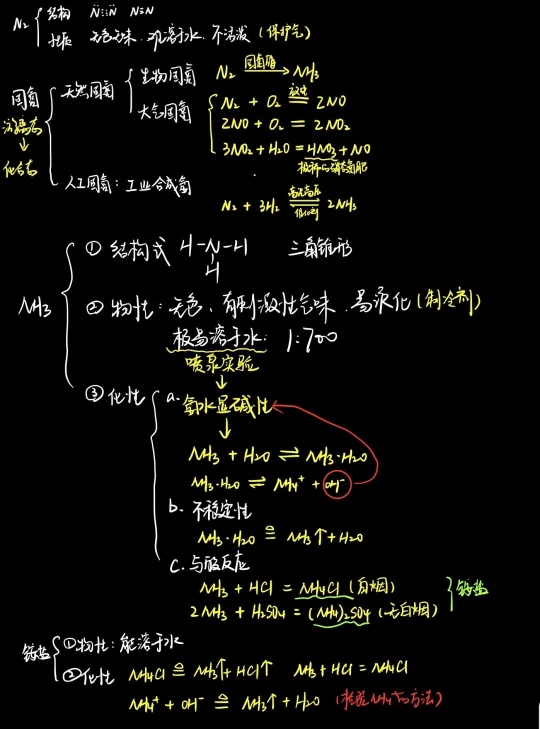 N₂ 结构 N⋮⋮N N≡N
性质 无色无味.难溶于水.不活泼(保护气)
固氮 游离态 ↓ 化合态
天然固氮
生物固氮 N₂ —固氮酶→ NH₃
大气固氮
N₂ + O₂ =放电= 2NO
2NO + O₂ = 2NO₂
3NO₂ + H₂O = HNO₃ + NO
人工固氮:工业合成氨
N₂ + 3H₂ ⇌ 高温高压 催化剂 2NH₃
NH₃
① 结构式 H-N-H 三角锥形
H
② 物性:无色、有刺激性气味.易液化(制冷剂)
极易溶于水. 1:700
喷泉实验
↓
③化性 a.氨水显碱性
↓
NH₃ + H₂O ⇌ NH₃·H₂O
NH₃·H₂O ⇌ NH₄⁺ + OH⁻
b. 不稳定性
NH₃·H₂O ≜ NH₃↑+H₂O
c.与酸反应
NH₃ + HCl = NH₄Cl (白烟)
2NH₃ + H₂SO₄ = (NH₄)₂SO₄ (无白烟)
铵盐
铵盐
①物性:能溶于水
②化性 NH₄Cl ≜ NH₃↑+HCl↑ NH₃+HCl=NH₄Cl
NH₄⁺ + OH⁻ ≜ NH₃↑ + H₂O (检验NH₄⁺的方法)